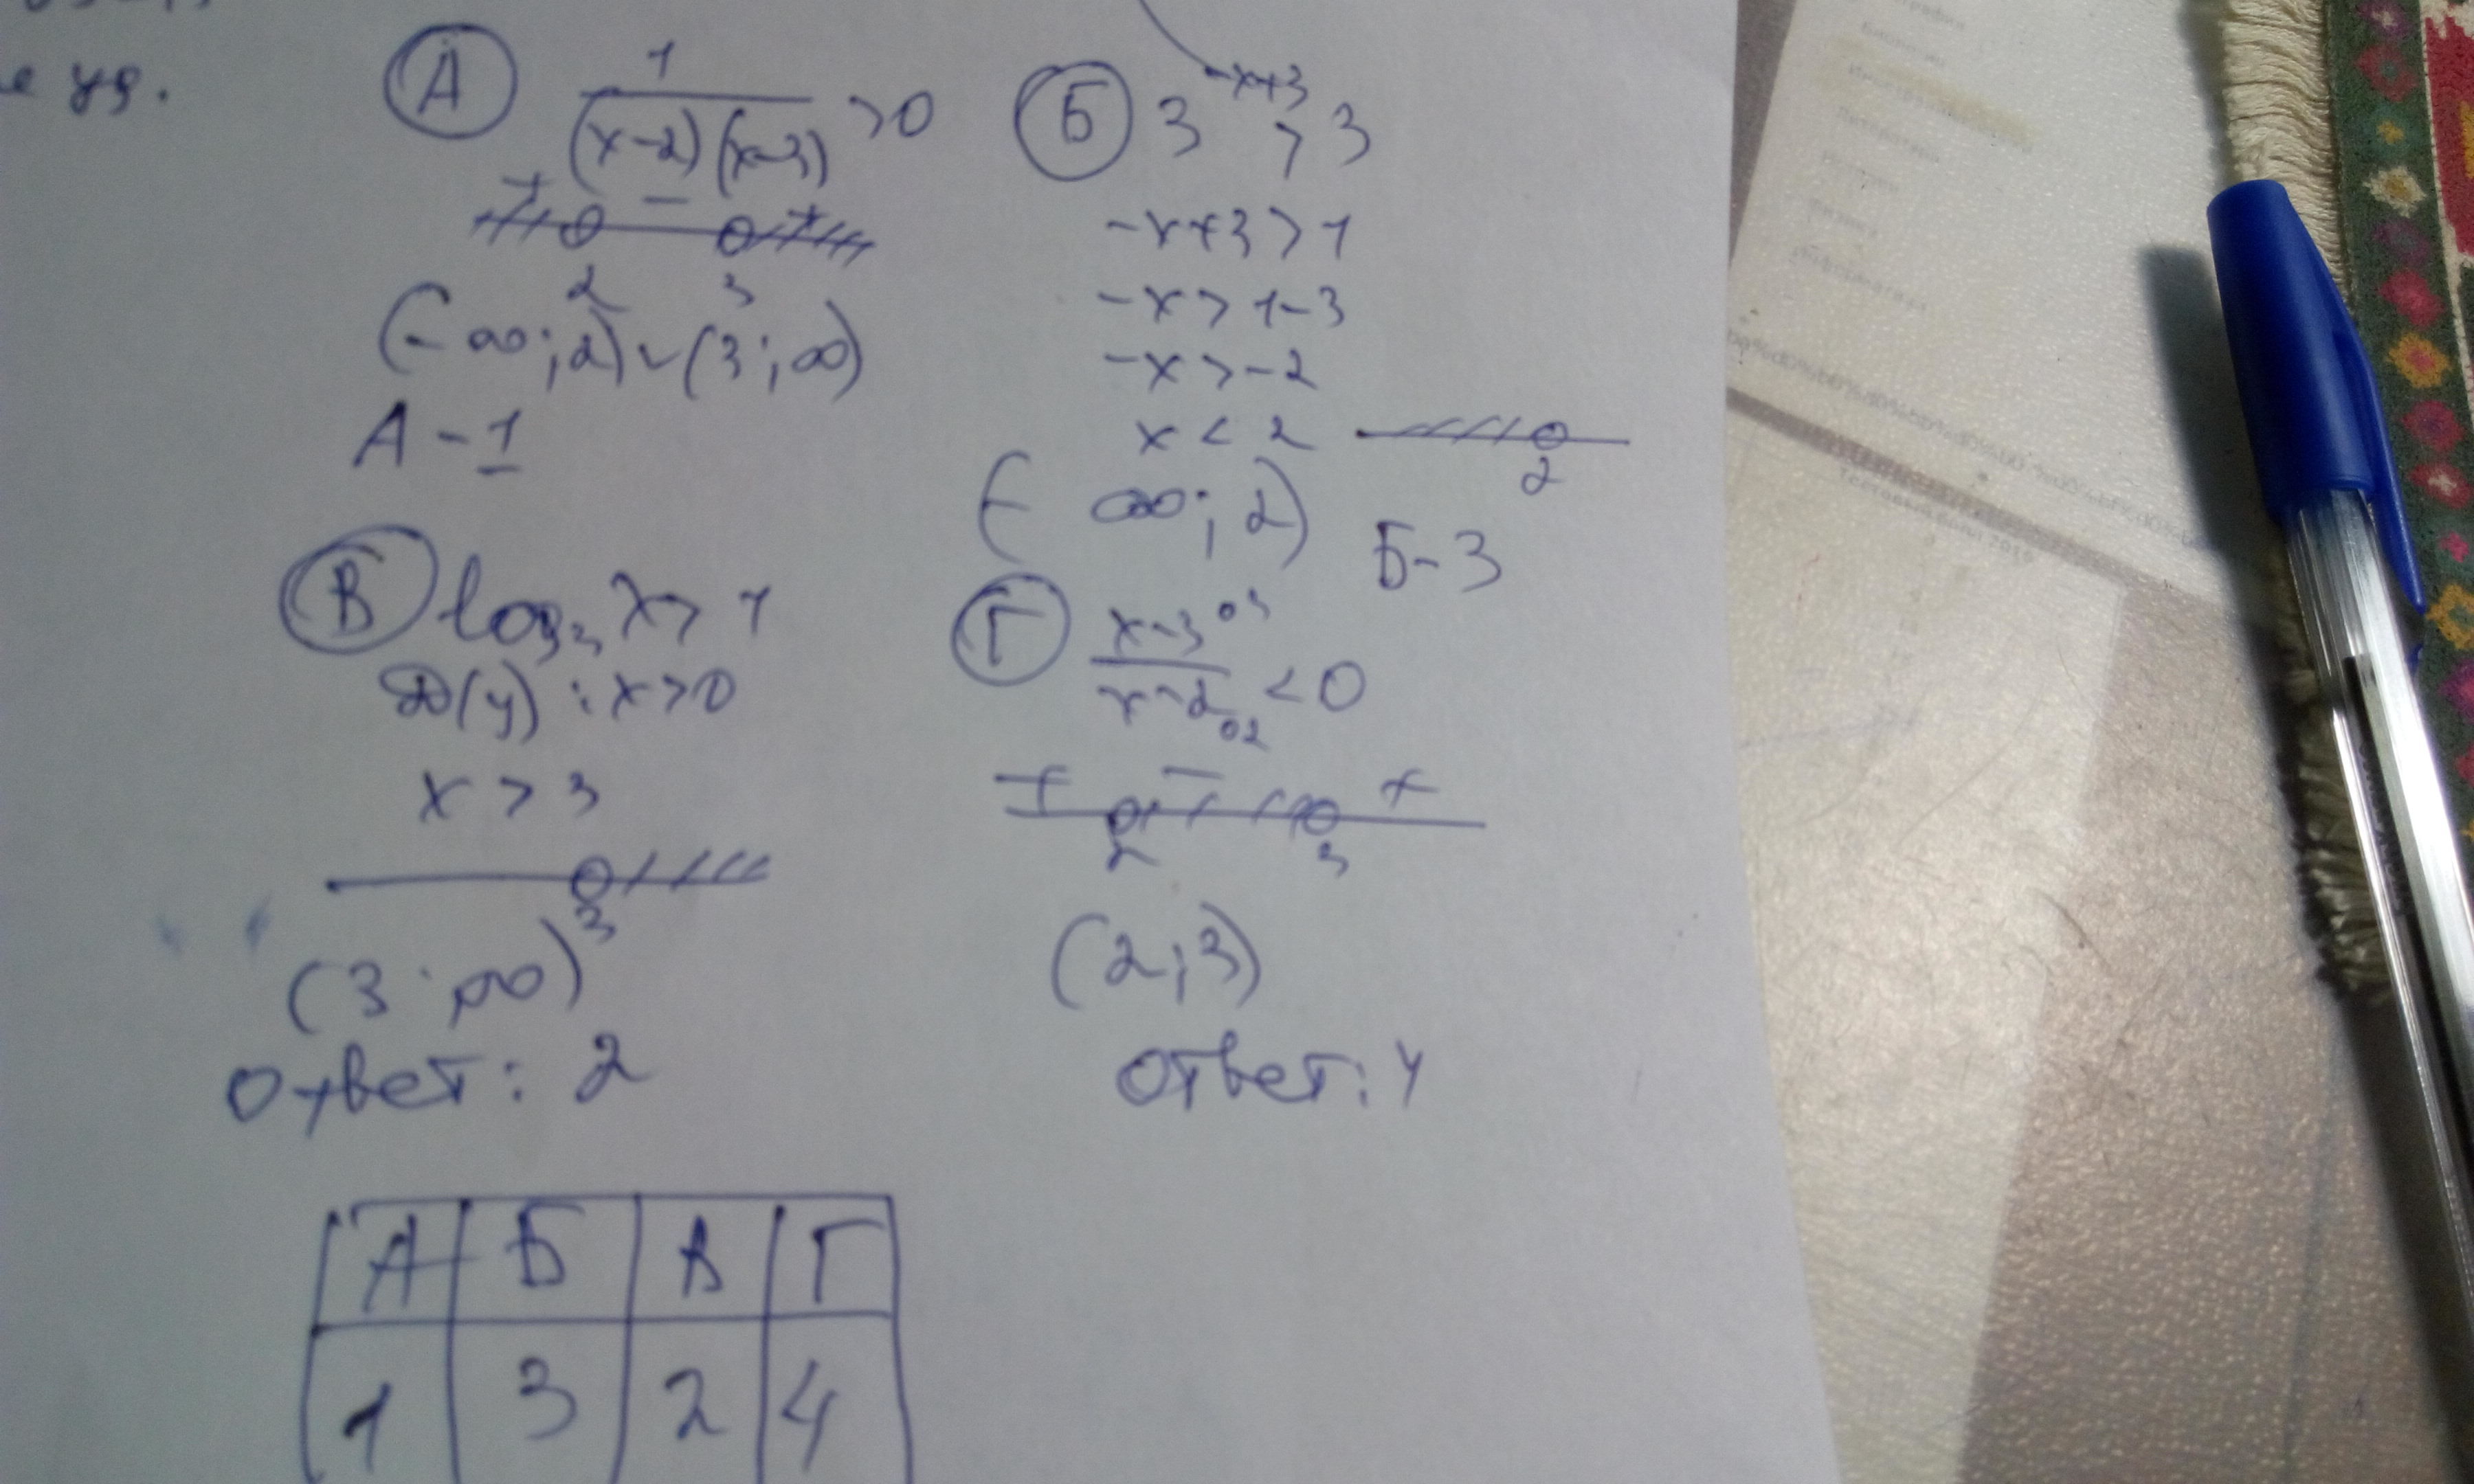 е уд.
А 1/((x-2)(x-3)) >0
+ - +
2 3
(-∞;2)∪(3;∞)
А - 1
Б 3^(-x+3) > 3
-x+3>1
-x>1-3
-x>-2
x < 2
2
(-∞;2) Б-3
В log₃x>1
D(y): x>0
x > 3
3
(3;∞)
Ответ: 2
Г (x-3)/(x-2) <0
03
02
+ - +
2 3
(2;3)
Ответ: 4
А Б В Г
1 3 2 4